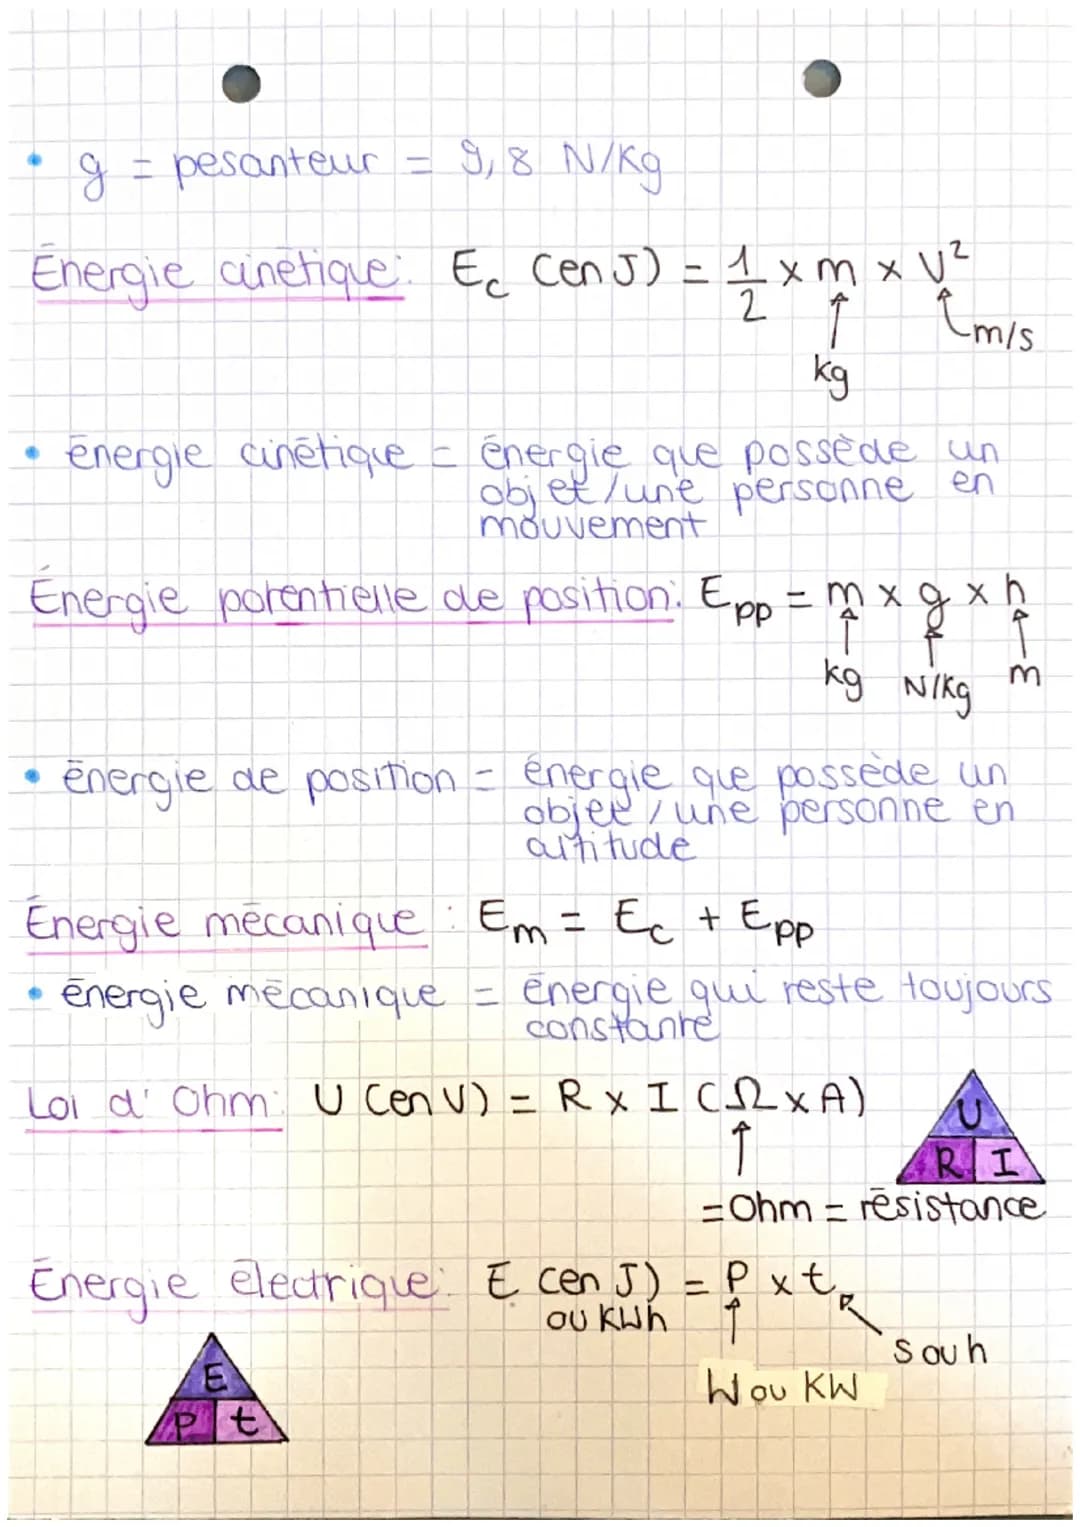 • g = pesanteur = 9,8 N/Kg
Énergie cinétique: Ec (en J) = 1/2 x m x V²
m/s
kg
• énergie cinétique = énergie que possède un
objet/une personne en
mouvement
Énergie potentielle de position: Epp = m x g x h
kg N/Kg m
• énergie de position = énergie que possède un
objet/une personne en
altitude
Énergie mécanique : Em = Ec + Epp
• énergie mécanique = énergie qui reste toujours
constante
Loi d'Ohm: U (en V) = R x I (Ω x A)
U
R I
= Ohm = résistance
Énergie électrique: E (en J) = P x t
ou KWh
s ou h
W ou KW
E
P t